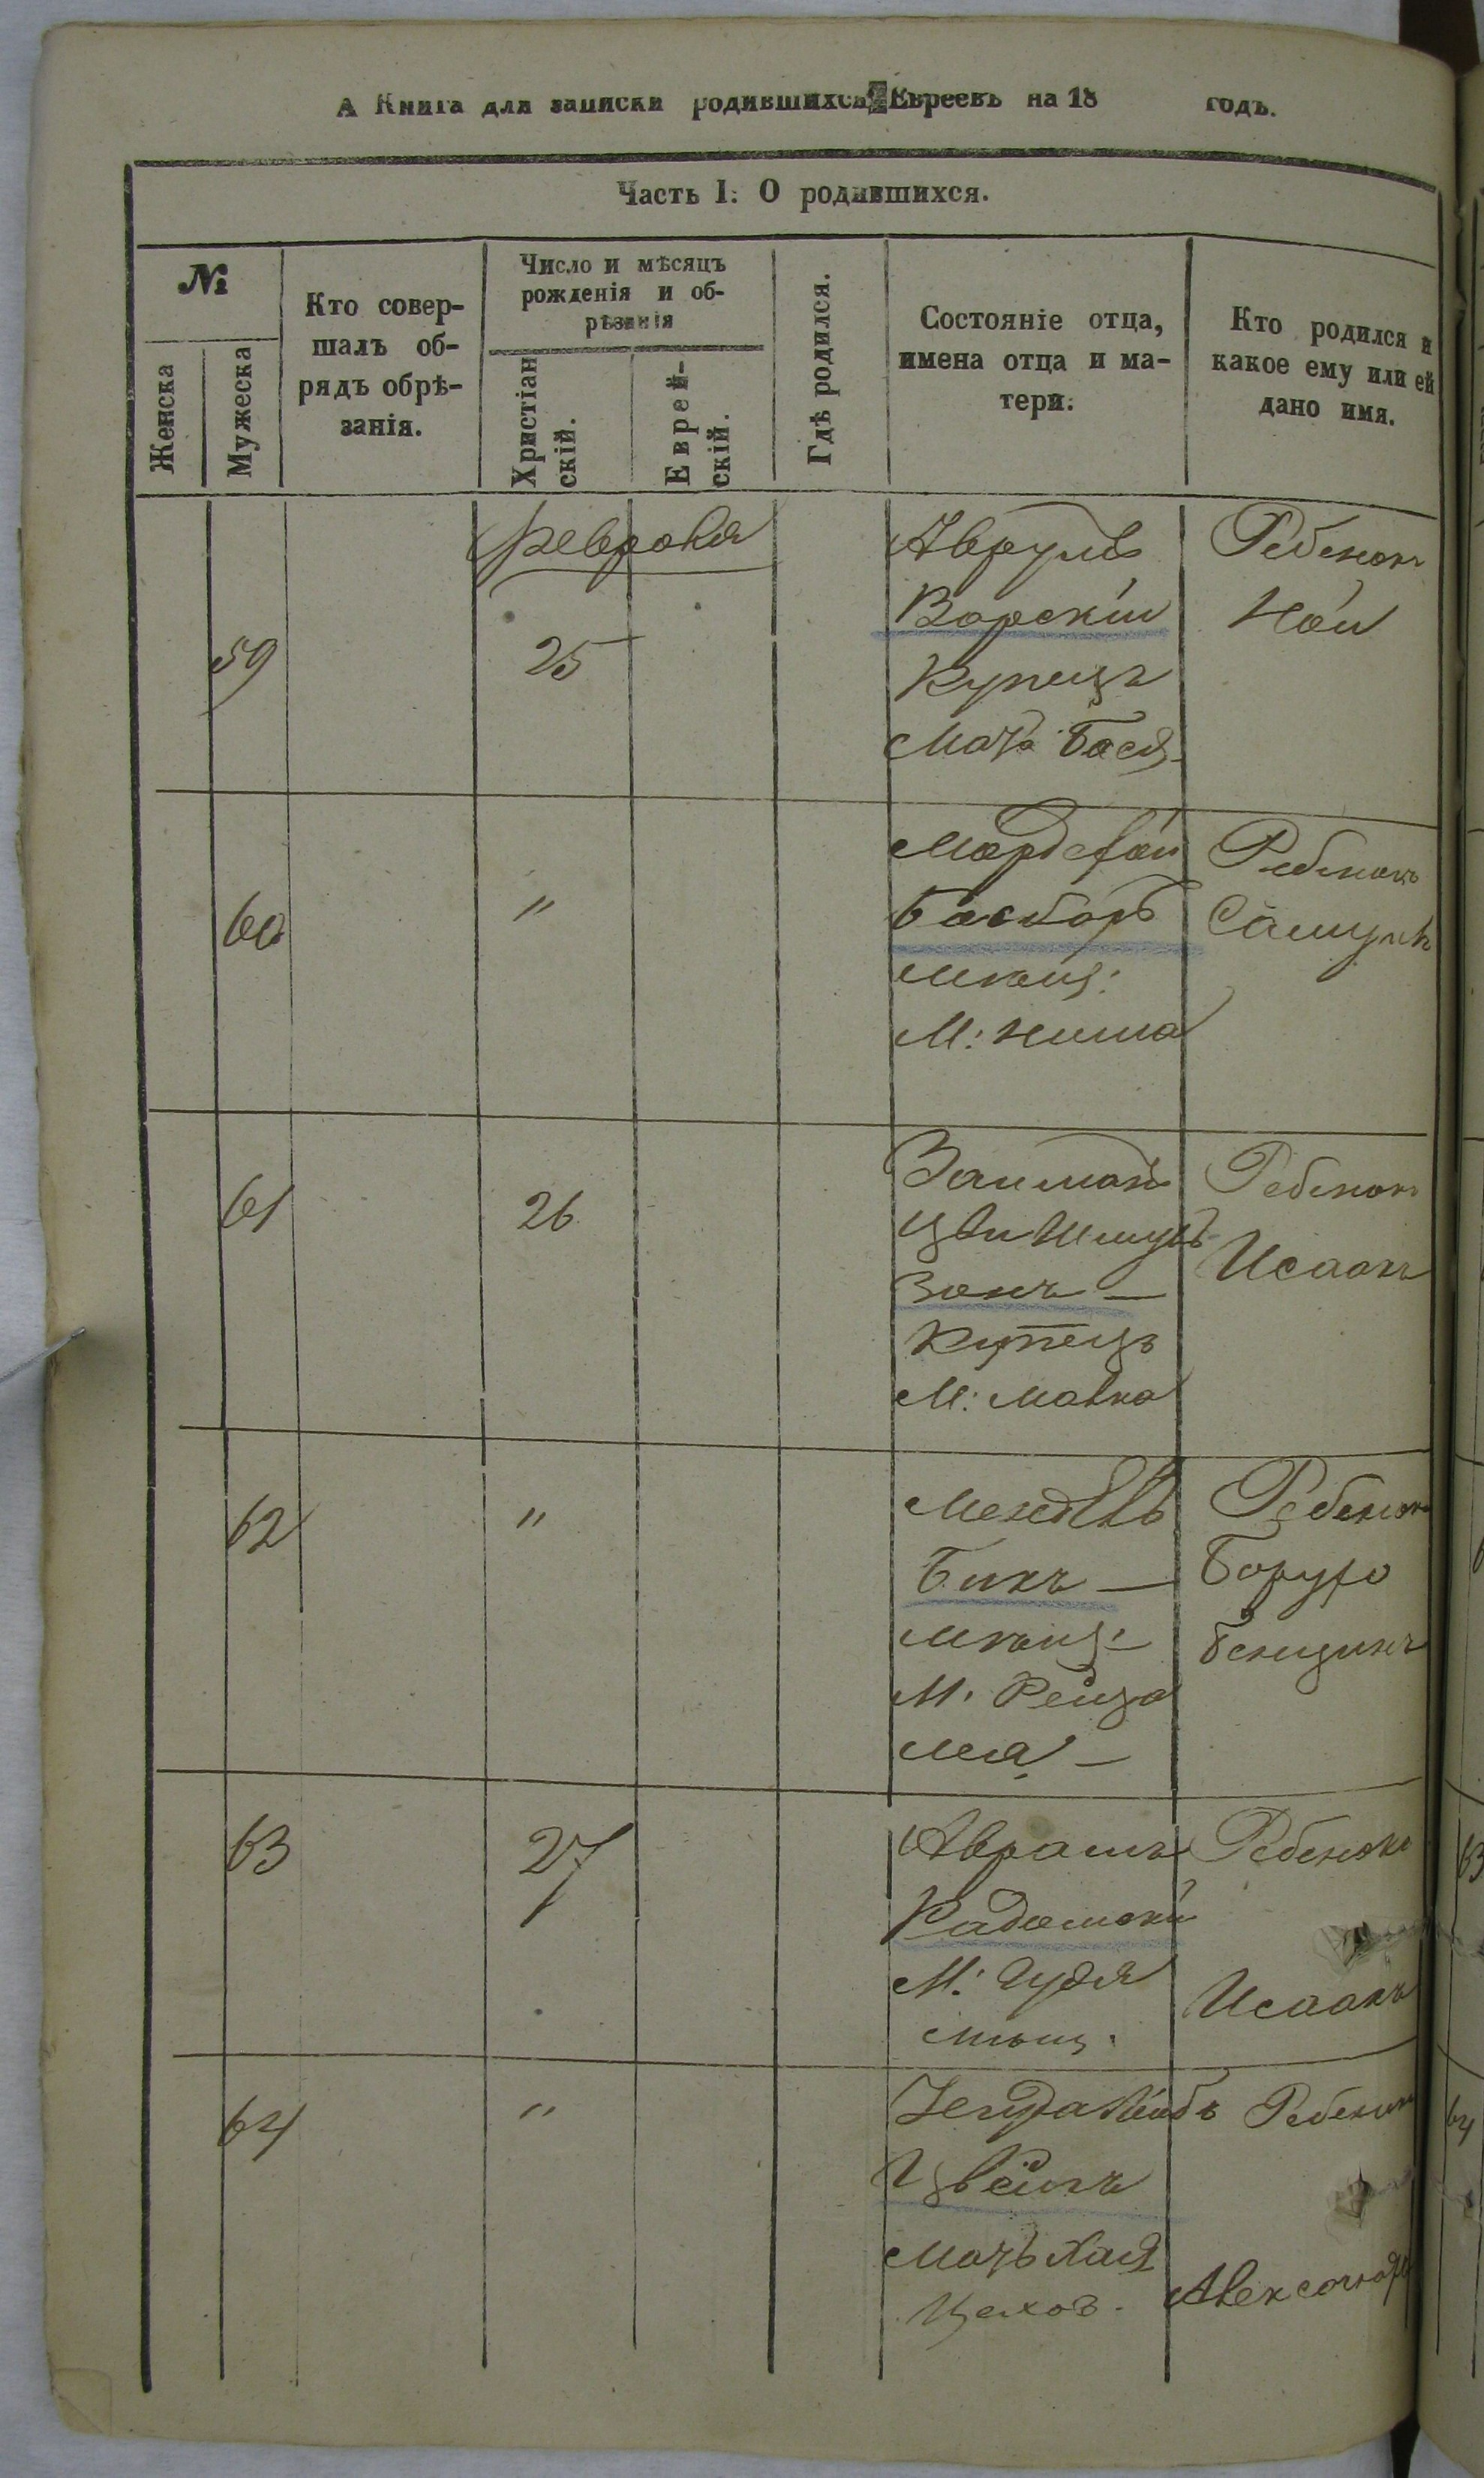 А Книга для записки родившихся Евреевъ на 18 годъ.
Часть I. О родившихся.
№
Женска
Мужеска
Кто совер-
шалъ об-
рядъ обрѣ-
занія.
Число и мѣсяцъ
рожденія и об-
рѣзанія
Христіан
скій.
Еврей-
скій.
Гдѣ родился.
Состояніе отца,
имена отца и ма-
тери.
Кто родился и
какое ему или ей
дано имя.
Февраля
59
25
Аврумъ
Варскій
Купецъ
Мать Бася
Ребенокъ
Ной
60
"
Мордхай
мѣщ:
М:
Ребенокъ
Самуилъ
61
26
Зальманъ
Цви Шмуль
зонъ —
Купецъ
М: Малка
Ребенокъ
Исаакъ
62
"
Мендель
Бикъ —
мѣщ:
М. Рейза
Лея —
Ребенокъ
Борухъ
Бенціонъ
63
27
Аврамъ
Радомскій
М:
мѣщ.
Ребенокъ
Исаакъ
64
"
Лейбъ
Цвейгъ
Мать Хая
Цехов.
Ребенокъ
Александръ
63
64